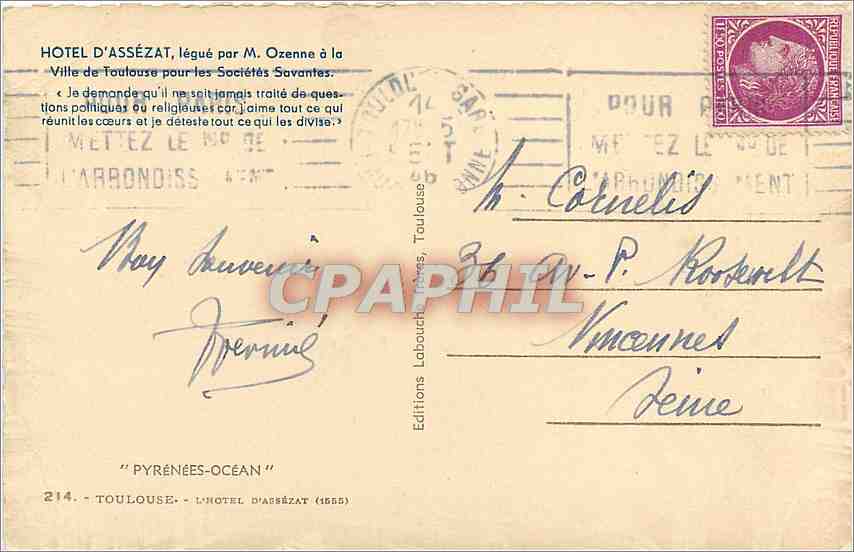 HOTEL D'ASSÉZAT, légué par M. Ozenne à la
Ville de Toulouse pour les Sociétés Savantes.
« Je demande qu'il ne soit jamais traité de ques-
tions politiques ou religieuses car j'aime tout ce qui
réunit les cœurs et je déteste tout ce qui les divise. »
POUR PARIS
METTEZ LE No DE
L'ARRONDISSEMENT
GARE
POUR
METTEZ LE No DE
L'ARRONDISSEMENT
REPUBLIQUE FRANÇAISE
1F.50 POSTES 1F.50
M. Cornelis
36 Av. P. Roosevelt
Vincennes
Seine
Bon Souvenir
CPAPHIL
Editions Labouche frères, Toulouse
"PYRÉNÉES-OCÉAN"
214. - TOULOUSE. - L'HOTEL D'ASSÉZAT (1555)